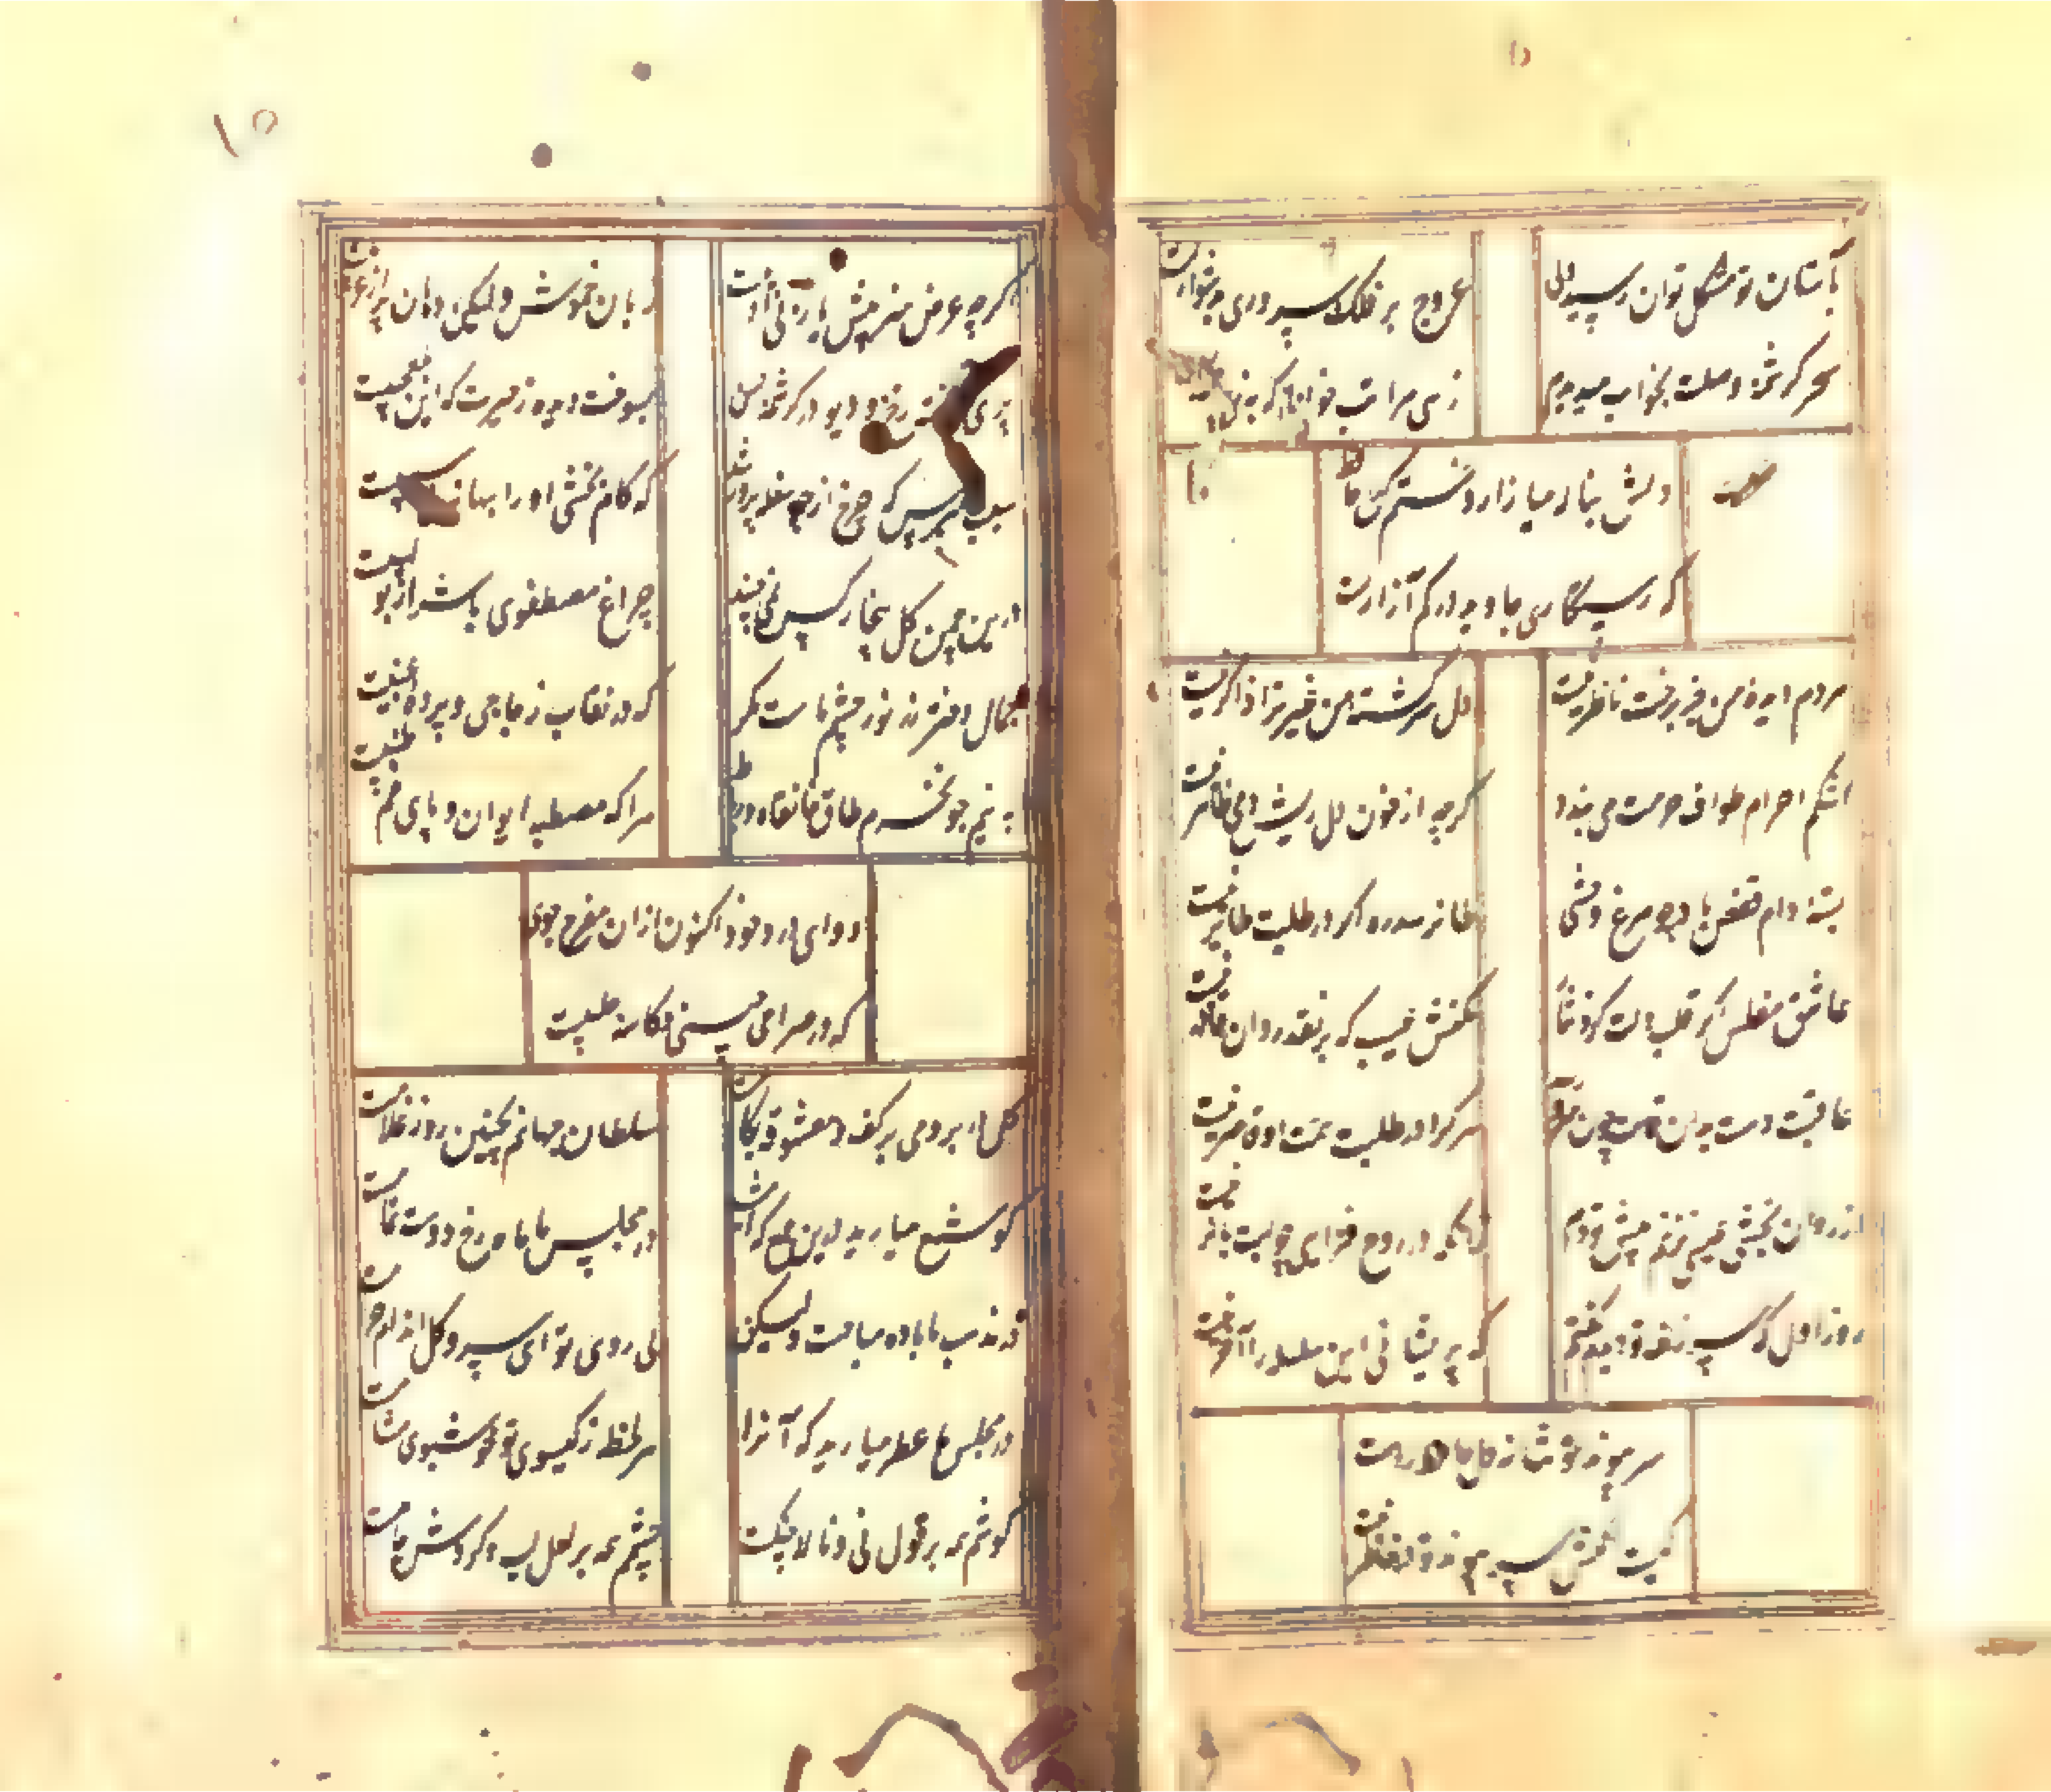 بآستان تو مشکل توان رسید بلی
عروج بر فلک سروری بدشوارست
سحر کرشمه وصلت بخواب میدیدم
زهی مراتب خوابی که به ز
دلش بناله میازار و ختم کن حافظ
که رستگاری جاوید در کم آزاریست
مردم دیده من جز برخت ناظر نیست
دل سرگشته من غیر ترا ذاکر نیست
اشکم احرام طواف حرمت می بندد
گرچه از خون دل ریش دمی طاهر نیست
بسته دام قفس باد چو مرغ وحشی
طایر سدره اگر در طلبت طایر نیست
عاشق مفلس اگر قلب دلت کرد نثار
مکنش عیب که بر نقد روان قادر نیست
عاقبت دست بدان سرو بلندش
هرکرا در طلبت همت او قاصر نیست
از روان بخشی عیسی نزنم پیش تو دم
زانکه در روح فزایی چو لبت ماهر نیست
روز اول که سر زلف تو دیدم گفتم
که پریشانی این سلسله را آخر نیست
سر پیوند تو تنها نه دل حافظ راست
کیست آنکش سر پیوند تو در خاطر نیست
۱۵
اگرچه عرض هنر پیش یار بی ادبیست
زبان خموش ولیکن دهان پر از عربیست
پری نهفته رخ و دیو در کرشمه حسن
بسوخت دیده ز حیرت که این چه بوالعجبیست
سبب مپرس که چرخ از چه سفله پرور شد
که کام بخشی او را بهانه بی سببیست
درین چمن گل بیخار کس نمی چیند
چراغ مصطفوی با شرار بولهبیست
جمال دختر رز نور چشم ماست مگر
که در نقاب زجاجی و پرده عنبیست
به نیم جو نخرم طاق خانقاه و رباط
مرا که مصطبه ایوان و پای خم طنبیست
دوای درد خود اکنون از آن مفرح جوی
که در صراحی چینی و کاسه حلبیست
گل در بر و می بر کف و معشوقه بکامست
سلطان جهانم بچنین روز غلامست
گو شمع میارید درین جمع که امشب
در مجلس ما ماه رخ دوست تمامست
در مذهب ما باده مباحست ولیکن
بی روی تو ای سرو گل اندام حرامست
در مجلس ما عطر میارید که آنرا
هر لحظه ز گیسوی تو خوشبوی مشامست
گوشم همه بر قول نی و ناله چنگست
چشمم همه بر لعل لب و گردش جامست